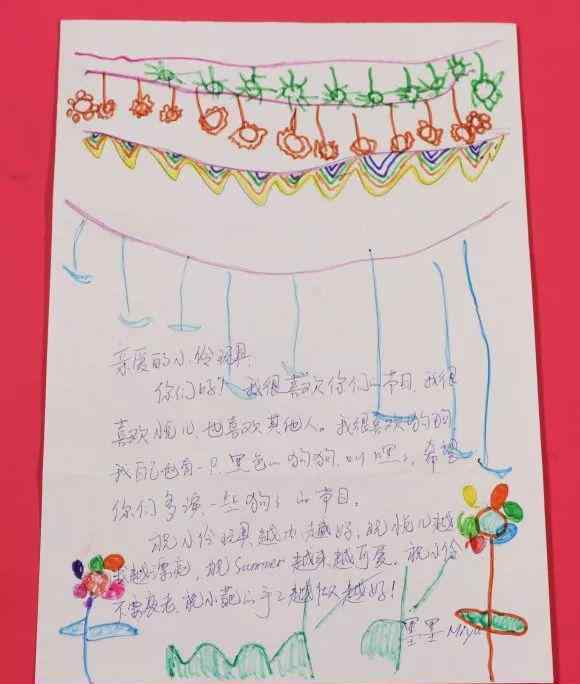 亲爱的小伶玩具:
你们好!我很喜欢你们的节目,我很
喜欢悦儿,也喜欢其他人。我很喜欢狗狗
我自己也有一只黑色的狗狗,叫嘿々,希望
你们多演一些狗々的节目。
祝小伶玩具越办越好,祝悦儿越
来越漂亮,祝Summer越来越可爱,祝小伶
不要变老,祝小范的手工越做越好!
墨墨 Miya